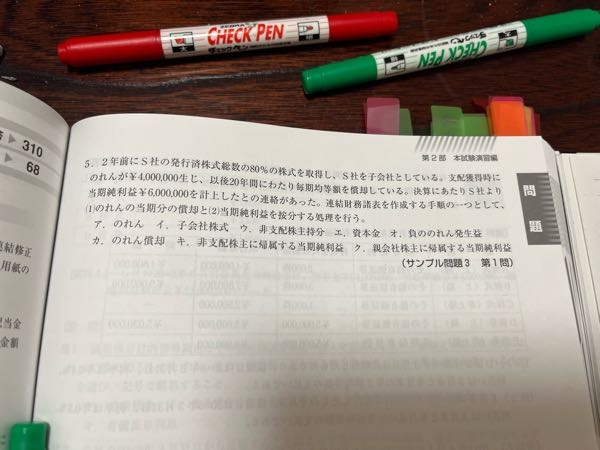 ZEBRA
CHECK PEN
チェックペン
太
CHECK PEN
チェックペン
310
68
第2部 本試験演習編
問題
5．2年前にS社の発行済株式総数の80％の株式を取得し、S社を子会社としている。支配獲得時に
のれんが￥4,000,000生じ、以後20年間にわたり毎期均等額を償却している。決算にあたりS社より
当期純利益￥6,000,000を計上したとの連絡があった。連結財務諸表を作成する手順の一つとして、
⑴のれんの当期分の償却と⑵当期純利益を按分する処理を行う。
ア．のれん イ．子会社株式 ウ．非支配株主持分 エ．資本金 オ．負ののれん発生益
カ．のれん償却 キ．非支配株主に帰属する当期純利益 ク．親会社株主に帰属する当期純利益
（サンプル問題3 第1問）
連結修正
用紙の
当金
金額